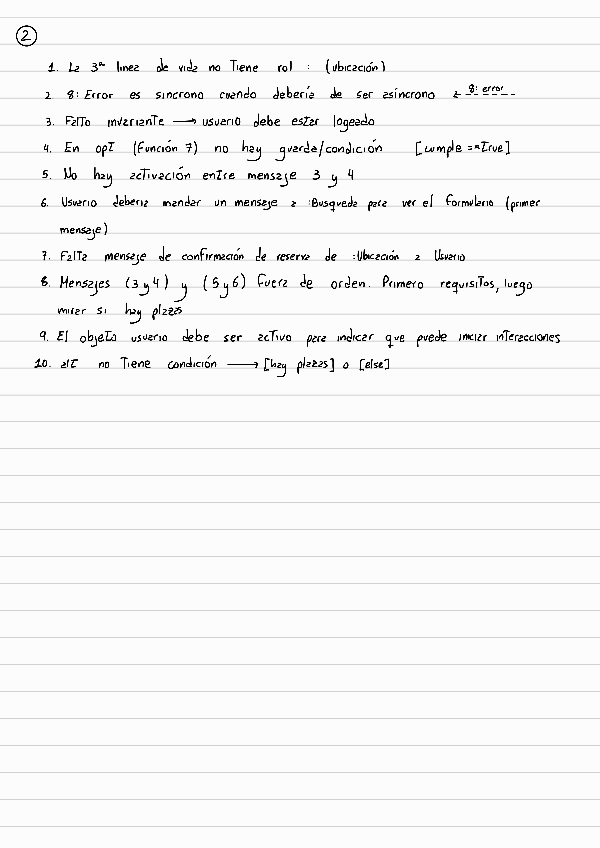 2
1. La 3ª linea de vida no Tiene rol : (Ubicación)
2 8: Error es sincrono cuando debería de ser asíncrono <- 8: error
3. Falto invariante → usuario debe estar logeado
4. En opt (Función 7) no hay guarda/condición [cumple == true]
5. No hay activación entre mensaje 3 y 4
6. Usuario deberia mandar un mensaje a :Busqueda para ver el formulario (primer
mensaje)
7. Falta mensaje de confirmación de reserva de :Ubicación a Usuario
8. Mensajes (3 y 4) y (5 y 6) fuera de orden. Primero requisitos, luego
mirar si hay plazas
9. El objeto usuario debe ser activo para indicar que puede iniciar interacciones
10. alt no Tiene condición → [hay plazas] o [else]